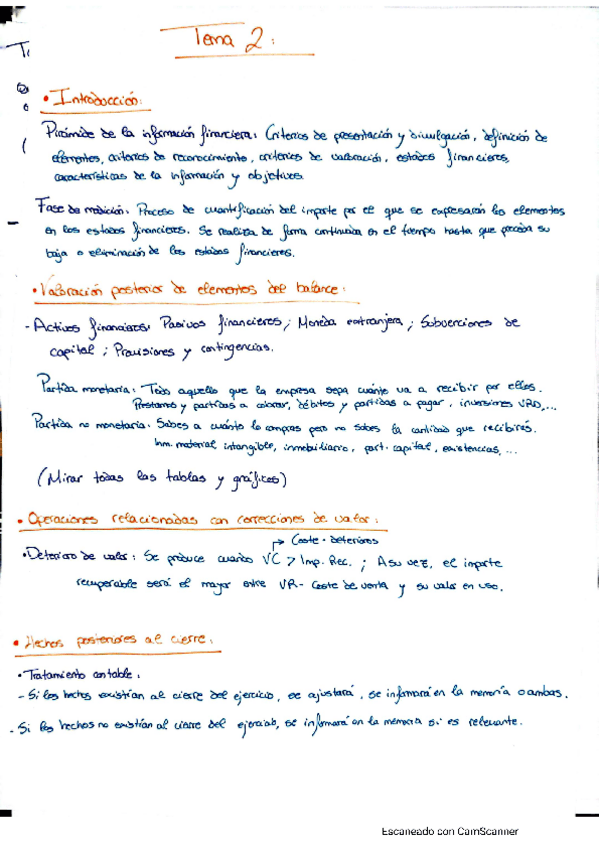 Tema 2:
T
• Introducción:
Pirámide de la información financiera: Criterios de presentación y divulgación, definición de
elementos, criterios de reconocimiento, criterios de valoración, estados financieros,
características de la información y objetivos.
Fase de medición: Proceso de cuantificación del importe por el que se expresarán los elementos
en los estados financieros. Se realiza de forma continuada en el tiempo hasta que proceda su
baja o eliminación de los estados financieros.
• Valoración posterior de elementos del balance:
- Activos financieros: Pasivos financieros; Moneda extranjera; Subvenciones de
capital; Provisiones y contingencias.
Partida monetaria: Todo aquello que la empresa sepa cuánto va a recibir por ellos.
Préstamos y partidas a cobrar, débitos y partidas a pagar, inversiones VRD,...
Partida no monetaria: Sabes a cuánto lo compras pero no sabes la cantidad que recibirás.
Inm. material intangible, inmobiliario, part. capital, existencias, ...
(Mirar todas las tablas y gráficos)
• Operaciones relacionadas con correcciones de valor:
→ Coste - deterioros
• Deterioro de valor: Se produce cuando VC > Imp. Rec. ; A su vez, el importe
recuperable será el mayor entre VR - Coste de venta y su valor en uso.
• Hechos posteriores al cierre:
• Tratamiento contable:
- Si los hechos existían al cierre del ejercicio, se ajustará, se informará en la memoria o ambas.
- Si los hechos no existían al cierre del ejercicio, se informará en la memoria si es relevante.
Escaneado con CamScanner